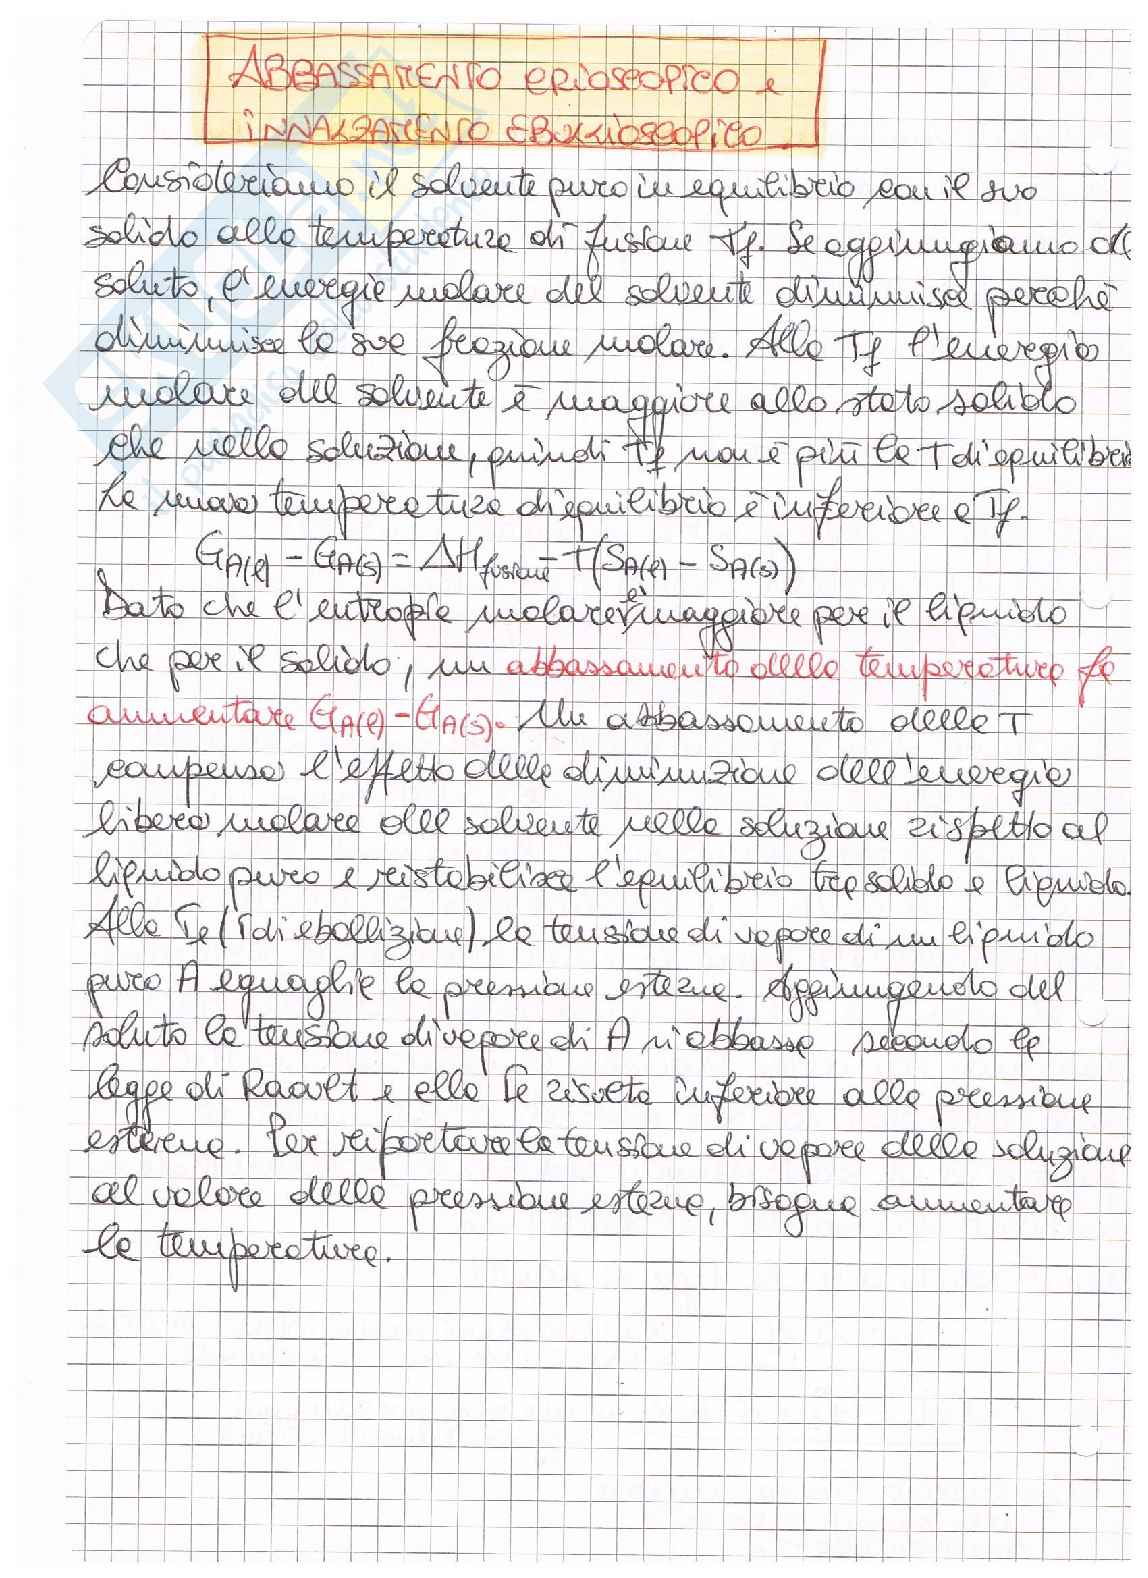 ABBASSAMENTO CRIOSCOPICO e
INNALZAMENTO EBULLIOSCOPICO
Consideriamo il solvente puro in equilibrio con il suo
solido alla temperatura di fusione Tf. Se aggiungiamo del
soluto, l'energia molare del solvente diminuisce perché
diminuisce la sua frazione molare. Alla Tf l'energia
molare del solvente è maggiore allo stato solido
che nella soluzione, quindi Tf non è più la T di equilibrio
La nuova temperatura di equilibrio è inferiore a Tf.
GA(l) - GA(s) = ΔHfusione - T(SA(l) - SA(s))
Dato che l'entropia molare è maggiore per il liquido
che per il solido, un abbassamento della temperatura fa
aumentare GA(l) - GA(s). Un abbassamento della T
compensa l'effetto della diminuzione dell'energia
libera molare del solvente nella soluzione rispetto al
liquido puro e ristabilisce l'equilibrio tra solido e liquido.
Alla Te (T di ebollizione) la tensione di vapore di un liquido
puro A eguaglia la pressione esterna. Aggiungendo del
soluto la tensione di vapore di A si abbassa secondo la
legge di Raoult e alla Te risulta inferiore alla pressione
esterna. Per riportare la tensione di vapore della soluzione
al valore della pressione esterna, bisogna aumentare
la temperatura.